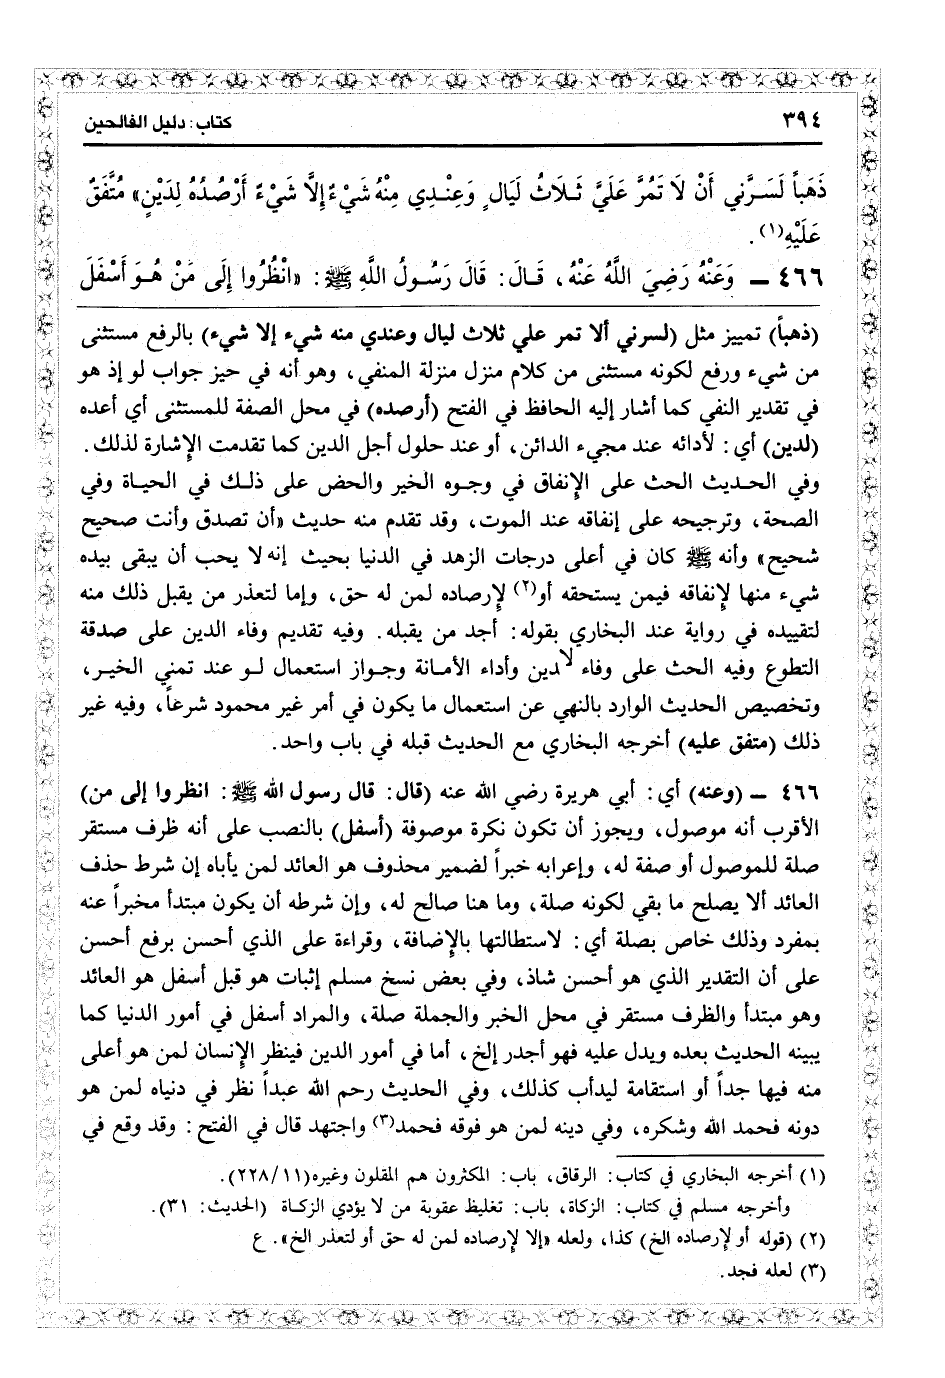 ٣٩٤
كتاب: دليل الفالحين
ذَهَباً لَسَرَّني أَنْ لَا تَمُرَّ عَلَيَّ ثَلَاثُ لَيَالٍ وَعِنْدِي مِنْهُ شَيْءٌ إِلَّا شَيْءٌ أَرْصُدُهُ لِدَيْنٍ» مُتَّفَقٌ
عَلَيْهِ(١).
٤٦٦ ـ وَعَنْهُ رَضِيَ اللَّهُ عَنْهُ، قَالَ: قَالَ رَسُولُ اللَّهِ ﷺ: «انْظُرُوا إِلَى مَنْ هُوَ أَسْفَلَ
(ذهباً) تمييز مثل (لسرني ألا تمر علي ثلاث ليال وعندي منه شيء إلا شيء) بالرفع مستثنى
من شيء ورفع لكونه مستثنى من كلام منزل منزلة المنفي، وهو أنه في حيز جواب لو إذ هو
في تقدير النفي كما أشار إليه الحافظ في الفتح (أرصده) في محل الصفة للمستثنى أي أعده
(لدين) أي: لأدائه عند مجيء الدائن، أو عند حلول أجل الدين كما تقدمت الإشارة لذلك.
وفي الحديث الحث على الإنفاق في وجوه الخير والحض على ذلك في الحياة وفي
الصحة، وترجيحه على إنفاقه عند الموت، وقد تقدم منه حديث «أن تصدق وأنت صحيح
شحيح» وأنه ﷺ كان في أعلى درجات الزهد في الدنيا بحيث إنه لا يحب أن يبقى بيده
شيء منها لإنفاقه فيمن يستحقه أو(٢) لإرصاده لمن له حق، وإما لتعذر من يقبل ذلك منه
لتقييده في رواية عند البخاري بقوله: أجد من يقبله. وفيه تقديم وفاء الدين على صدقة
التطوع وفيه الحث على وفاء لادين وأداء الأمانة وجواز استعمال لو عند تمني الخير،
وتخصيص الحديث الوارد بالنهي عن استعمال ما يكون في أمر غير محمود شرعاً، وفيه غير
ذلك (متفق عليه) أخرجه البخاري مع الحديث قبله في باب واحد.
٤٦٦ ـ (وعنه) أي: أبي هريرة رضي الله عنه (قال: قال رسول الله ﷺ: انظروا إلى من)
الأقرب أنه موصول، ويجوز أن تكون نكرة موصوفة (أسفل) بالنصب على أنه ظرف مستقر
صلة للموصول أو صفة له، وإعرابه خبراً لضمير محذوف هو العائد لمن يأباه إن شرط حذف
العائد ألا يصلح ما بقي لكونه صلة، وما هنا صالح له، وإن شرطه أن يكون مبتدأ مخبراً عنه
بمفرد وذلك خاص بصلة أي: لاستطالتها بالإضافة، وقراءة على الذي أحسن برفع أحسن
على أن التقدير الذي هو أحسن شاذ، وفي بعض نسخ مسلم إثبات هو قبل أسفل هو العائد
وهو مبتدأ والظرف مستقر في محل الخبر والجملة صلة، والمراد أسفل في أمور الدنيا كما
يبينه الحديث بعده ويدل عليه فهو أجدر إلخ، أما في أمور الدين فينظر الإنسان لمن هو أعلى
منه فيها جداً أو استقامة ليدأب كذلك، وفي الحديث رحم الله عبداً نظر في دنياه لمن هو
دونه فحمد الله وشكره، وفي دينه لمن هو فوقه فحمد(٣) واجتهد قال في الفتح: وقد وقع في
(١) أخرجه البخاري في كتاب: الرقاق، باب: المكثرون هم المقلون وغيره(٢٢٨/١١).
وأخرجه مسلم في كتاب: الزكاة، باب: تغليظ عقوبة من لا يؤدي الزكاة (الحديث: ٣١).
(٢) (قوله أو لإرصاده الخ) كذا، ولعله «إلا لإرصاده لمن له حق أو لتعذر الخ». ع
(٣) لعله فجد.